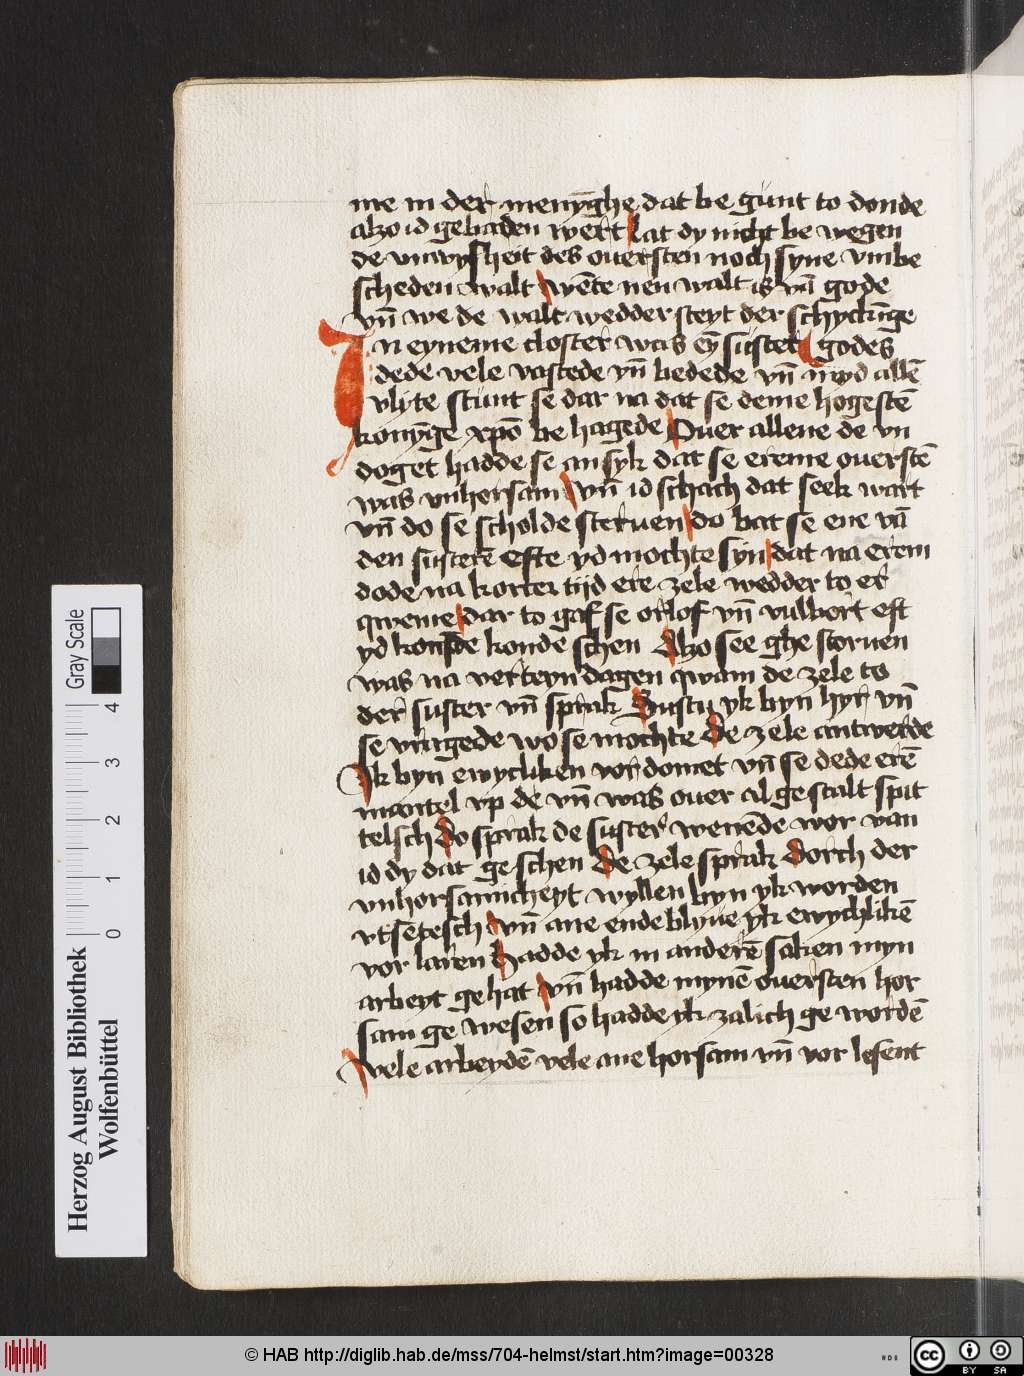 me in der menyghe dat be gunt to donde
alzo id gebaden wert lat dy nicht be wegen
de vnwysheit des ouersten noch syne vmbe
scheden walt wēte nen walt is vā gode
vn̄ we de walt wedder steyt der schyckīge
In eyneme closter was eȳ suster godes
dede vele vastede vn̄ bedede vn̄ myd allē
vlyte stunt se dar na dat se deme hogestē
konyge xpō be hagede Ouer allene de vn
doget hadde se an syk dat se ereme ouerstē
was vnhorsam vn̄ id schach dat seek wart
vn̄ do se scholde steruen do bat se ene vā
den susterē Efte yd mochte syn dat na erem
dode na korter tijd ere zele wedder to er
qweme dar to gaf se orlof vn̄ vulbort eft
yd konde schen Alzo see ghe storuen
was na verteyn dagen qwam de zele to
der suster vn̄ sprak Sustu yk byn hyr vn̄
se vragede wo se mochte De zele antwerde
Ik byn ewycliken vordomet vn̄ se dede erē
mantel vp de vn̄ was ouer al gestalt spit
telsch do sprak de suster wenēde wor van
id dy dat ge schen de zele sprak dorch der
vnhorsamicheyt wyllen byn yk worden
vtsētesch vn̄ ane ende blyue yk ewychlikē
vor laren hadde yk in anderē saken myn
arbeyt gehat vn̄ hadde mynē ouersten hor
sam ge wesen so hadde yk zalich ge wordē
vele arbeydē vele ane horsam vn̄ vor lesent
Herzog August Bibliothek
Wolfenbüttel
Gray Scale
0 1 2 3 4
© HAB http://diglib.hab.de/mss/704-helmst/start.htm?image=00328
HAB
cc BY SA